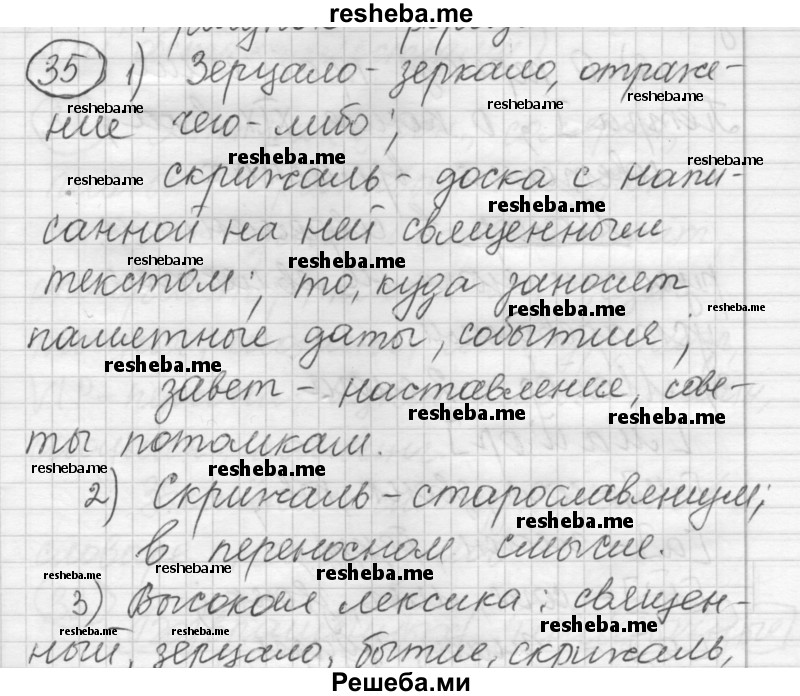 resheba.me
35 1) Зерцало - зеркало, отраже-
resheba.me resheba.me resheba.me
ние чего-либо;
resheba.me resheba.me
скрижаль - доска с напи-
resheba.me resheba.me
санной на ней священным
resheba.me resheba.me
текстом; то, куда заносят
resheba.me resheba.me
памятные даты, события;
resheba.me
завет - наставление, сове-
resheba.me resheba.me
ты потомкам.
resheba.me resheba.me
2) Скрижаль - старославянизм;
resheba.me
в переносном смысле.
resheba.me resheba.me resheba.me
3) Высокая лексика: священ-
resheba.me resheba.me resheba.me
ный, зерцало, бытие, скрижаль,
Решеба.ми